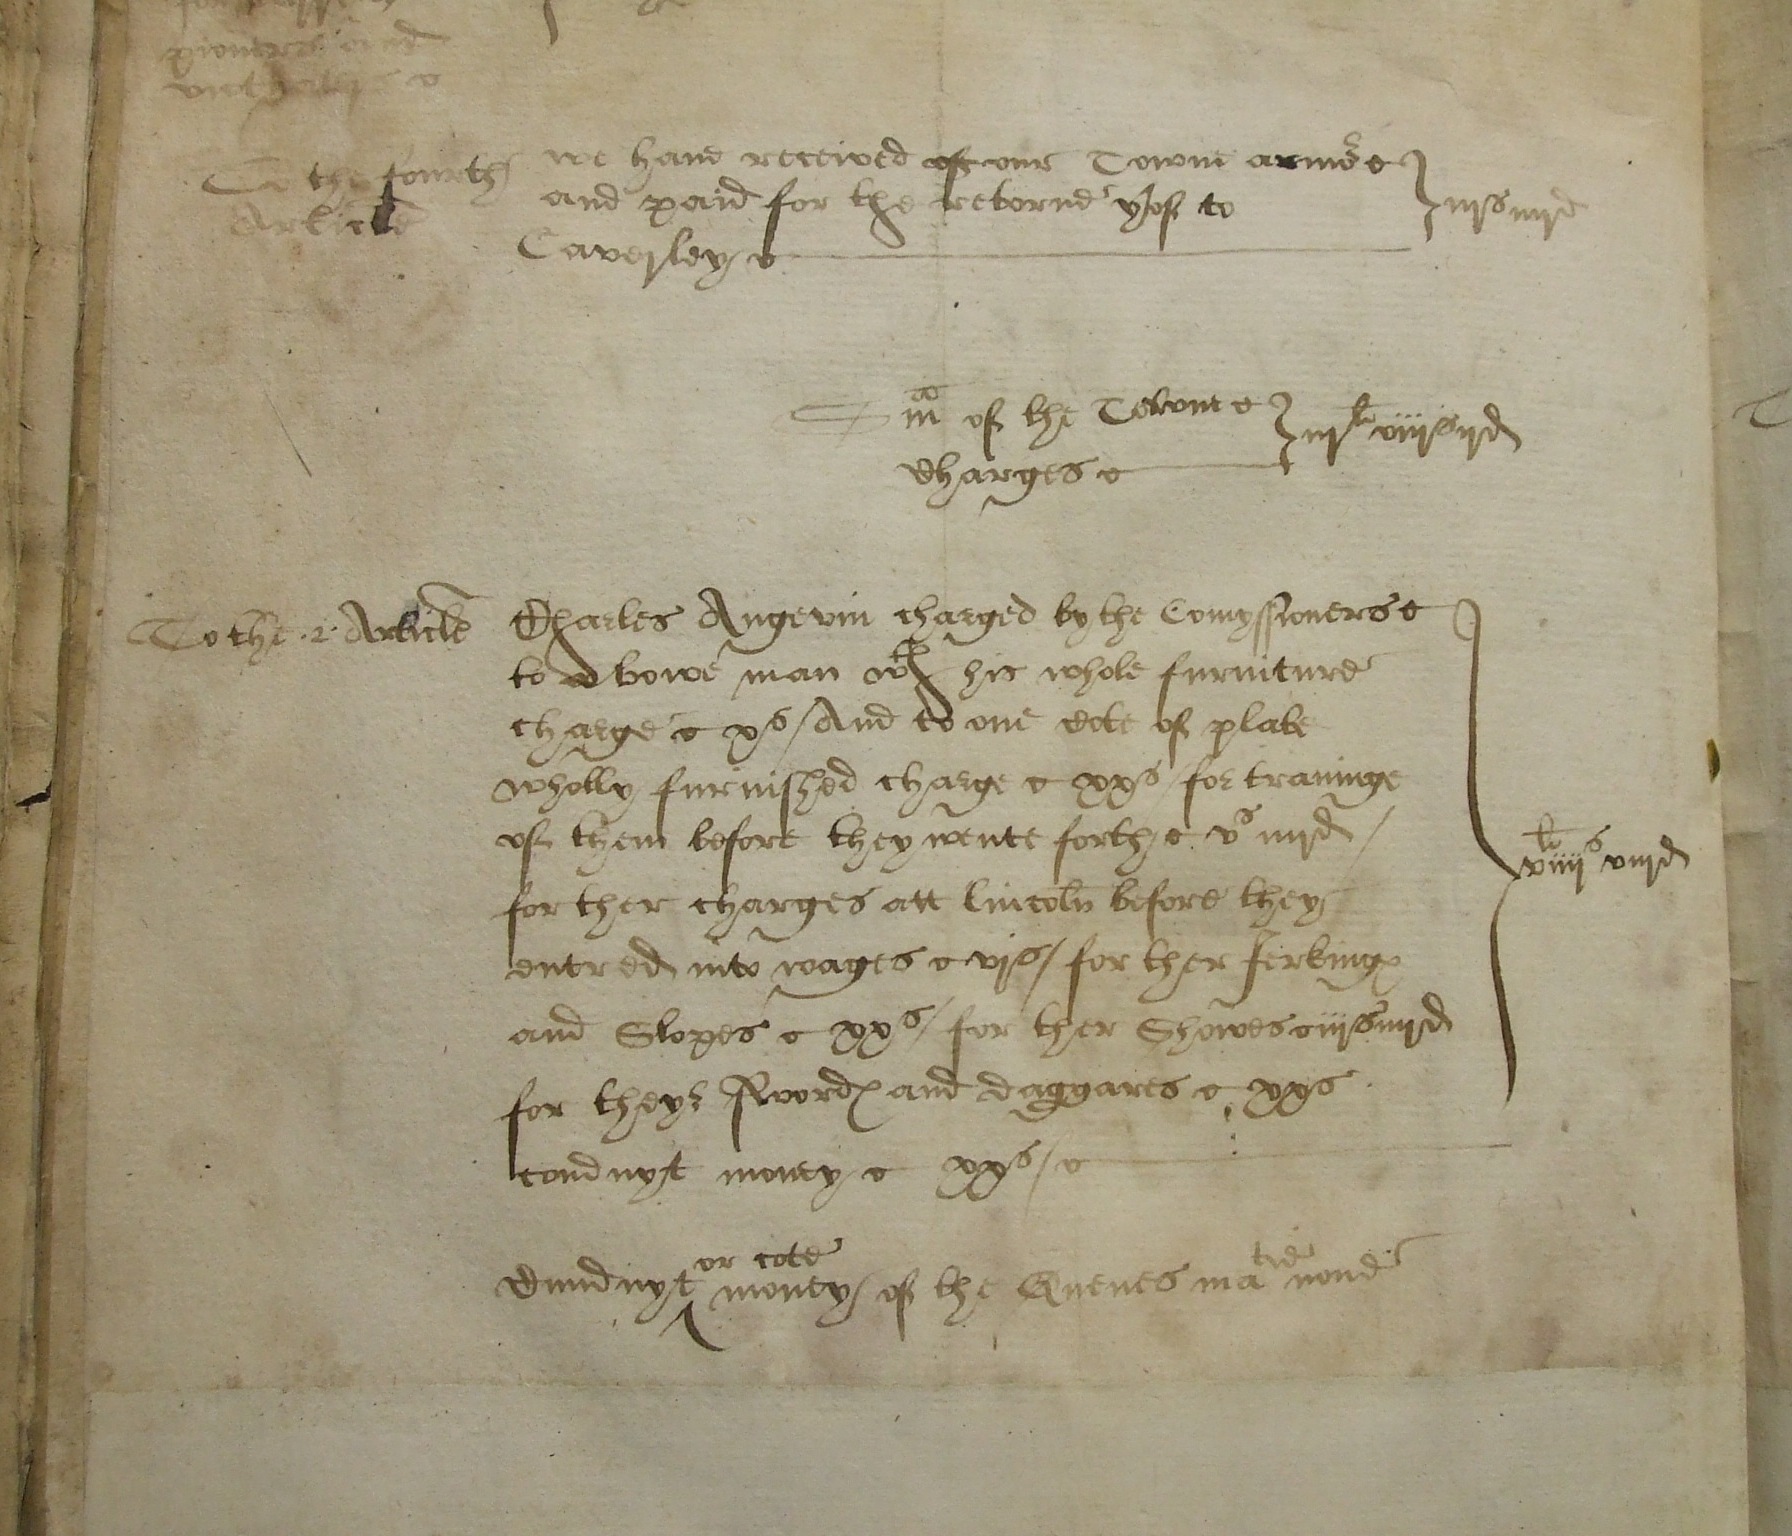 pioneres and
victualls
To the fourth
Article
we haue received of our Towne armor
and paid for the retorne yrof to
Caversley
iijs iiijd
Sma of the Towne
charges
iijli viijs ijd
To the .2. Article
Charles Angevin charged by the Comyssioners
to a bowe man wth his whole furniture
charge xs / And to one cote of plate
wholly furnished charge xxs / for traninge
of them before they wente forth vs iiijd /
for ther charges att Lincoln before they
entred into wages vjs / for ther Jerkings
and Slopes xxs / for ther Showes iijs iiijd
for theyr swordes and daggares xxs
conduyt money xxs /
vli iiijs viijd
Cunduyt or cote money of the Quenes matie none